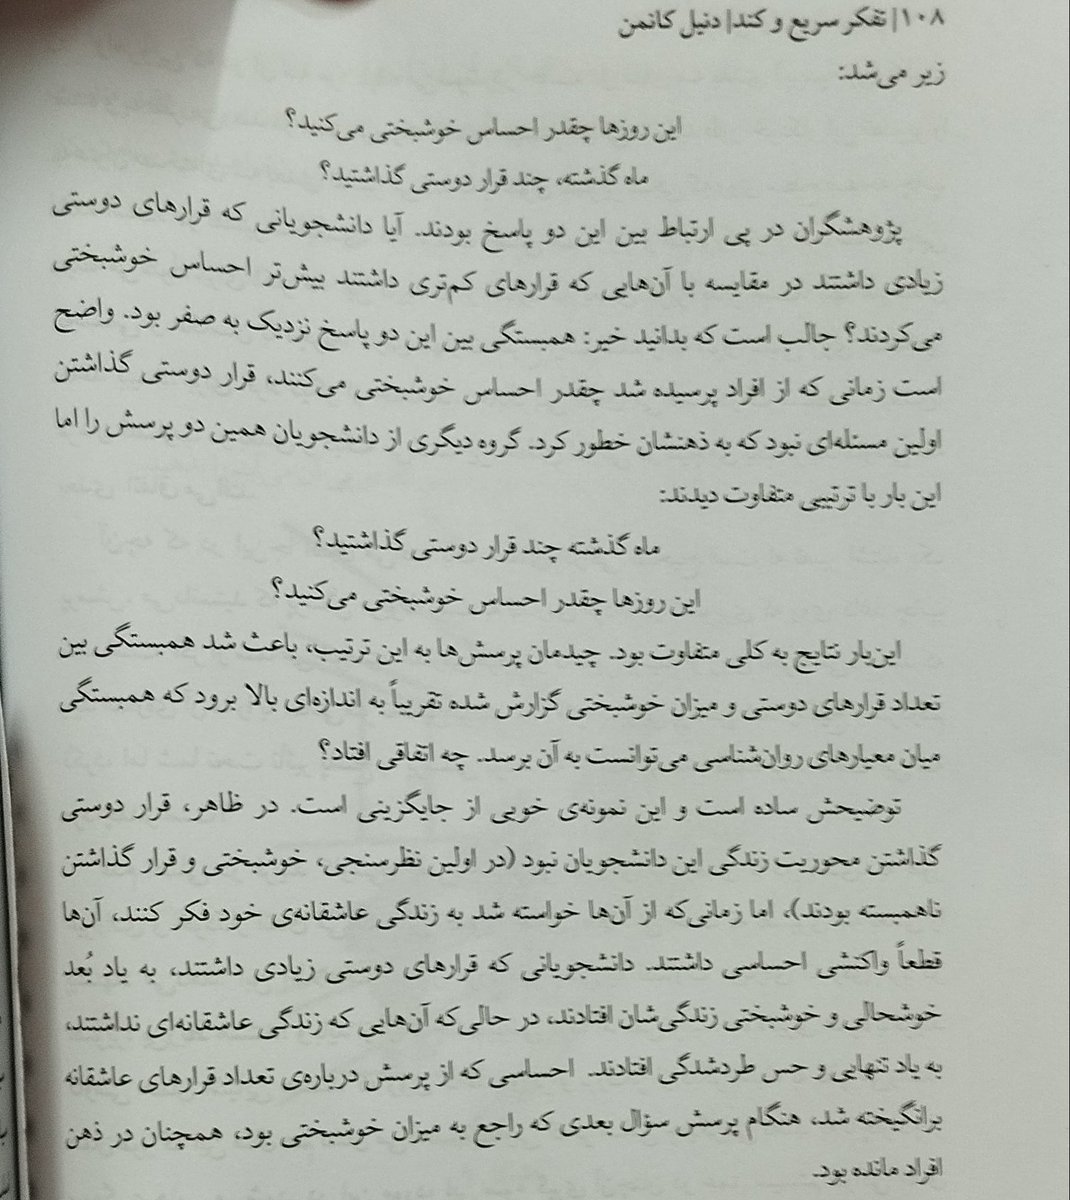 ۱۰۸| تفکر سریع و کند| دنیل کانمن
زیر می‌شد:
این روزها چقدر احساس خوشبختی می‌کنید؟
ماه گذشته، چند قرار دوستی گذاشتید؟
پژوهشگران در پی ارتباط بین این دو پاسخ بودند. آیا دانشجویانی که قرارهای دوستی
زیادی داشتند در مقایسه با آن‌هایی که قرارهای کم‌تری داشتند بیش‌تر احساس خوشبختی
می‌کردند؟ جالب است که بدانید خیر: همبستگی بین این دو پاسخ نزدیک به صفر بود. واضح
است زمانی که از افراد پرسیده شد چقدر احساس خوشبختی می‌کنند، قرار دوستی گذاشتن
اولین مسئله‌ای نبود که به ذهنشان خطور کرد. گروه دیگری از دانشجویان همین دو پرسش را اما
این بار با ترتیبی متفاوت دیدند:
ماه گذشته چند قرار دوستی گذاشتید؟
این روزها چقدر احساس خوشبختی می‌کنید؟
این‌بار نتایج به کلی متفاوت بود. چیدمان پرسش‌ها به این ترتیب، باعث شد همبستگی بین
تعداد قرارهای دوستی و میزان خوشبختی گزارش شده تقریباً به اندازه‌ای بالا برود که همبستگی
میان معیارهای روان‌شناسی می‌توانست به آن برسد. چه اتفاقی افتاد؟
توضیحش ساده است و این نمونه‌ی خوبی از جایگزینی است. در ظاهر، قرار دوستی
گذاشتن محوریت زندگی این دانشجویان نبود (در اولین نظرسنجی، خوشبختی و قرار گذاشتن
ناهمبسته بودند)، اما زمانی‌که از آن‌ها خواسته شد به زندگی عاشقانه‌ی خود فکر کنند، آن‌ها
قطعاً واکنشی احساسی داشتند. دانشجویانی که قرارهای دوستی زیادی داشتند، به یاد بُعد
خوشحالی و خوشبختی زندگی‌شان افتادند، در حالی‌که آن‌هایی که زندگی عاشقانه‌ای نداشتند،
به یاد تنهایی و حس طردشدگی افتادند. احساسی که از پرسش درباره‌ی تعداد قرارهای عاشقانه
برانگیخته شد، هنگام پرسش سؤال بعدی که راجع به میزان خوشبختی بود، همچنان در ذهن
افراد مانده بود.